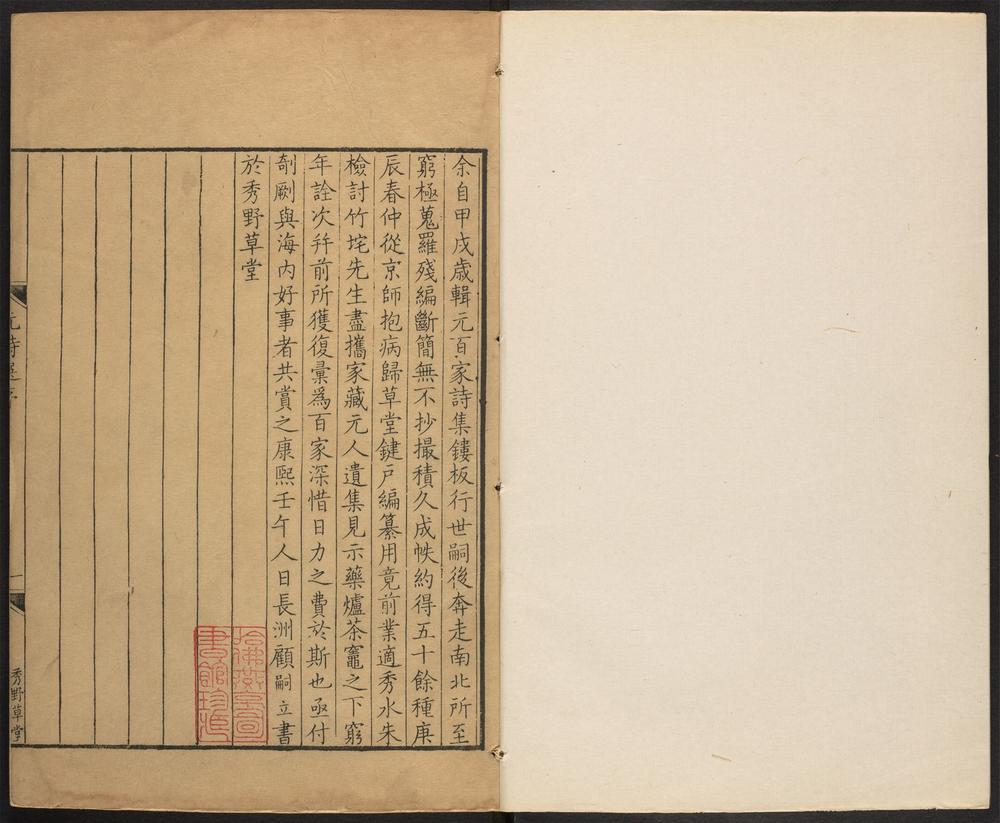 余自甲戌歲輯元百家詩集鏤板行世嗣後奔走南北所至
窮極蒐羅殘編斷簡無不抄撮積久成帙約得五十餘種庚
辰春仲從京師抱病歸草堂鍵戶編纂用竟前業適秀水朱
檢討竹垞先生盡攜家藏元人遺集見示藥爐茶竈之下窮
年詮次幷前所獲復彙爲百家深惜日力之費於斯也亟付
剞劂與海內好事者共賞之康熙壬午人日長洲顧嗣立書
於秀野草堂
哈佛燕京圖
書館珍藏
元詩選序
一
秀野草堂